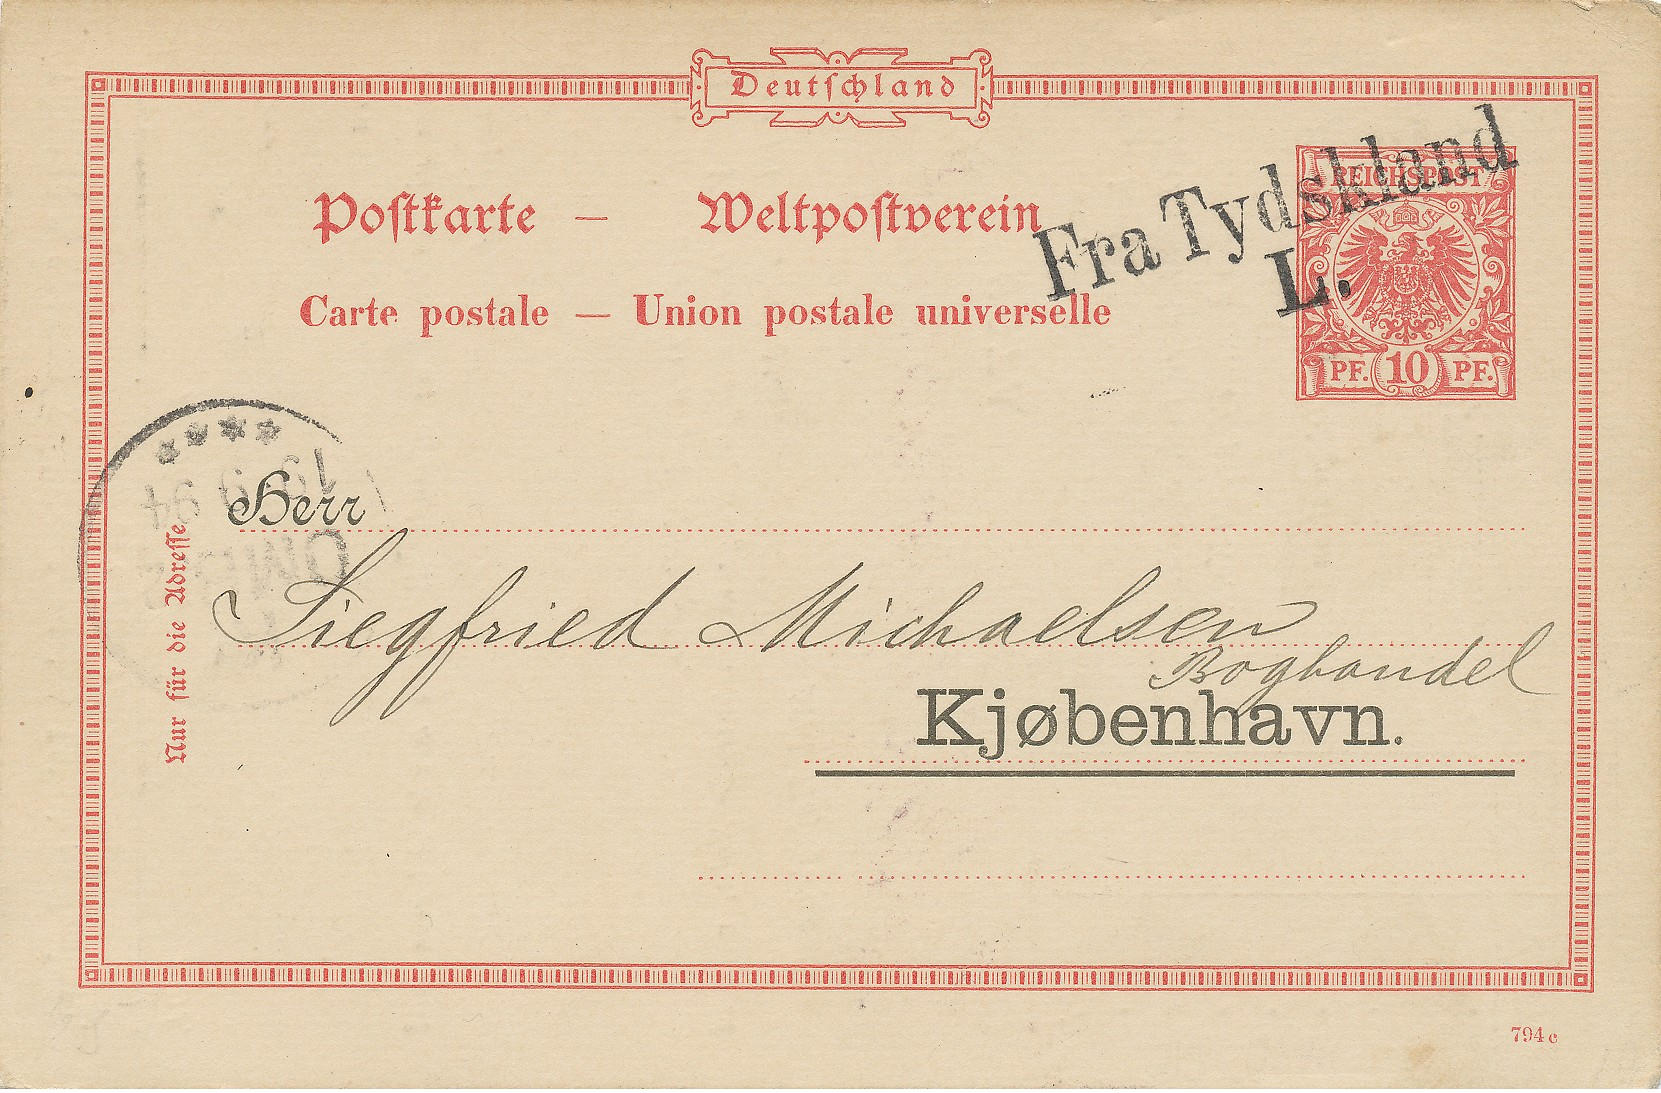 Deutschland
Postkarte — Weltpostverein
Carte postale — Union postale universelle
Fra Tydskland
L.
REICHSPOST
PF. 10 PF.
Herr
Siegfried Michaelsen
Boghandel
Kjøbenhavn.
Nur für die Adresse
794c